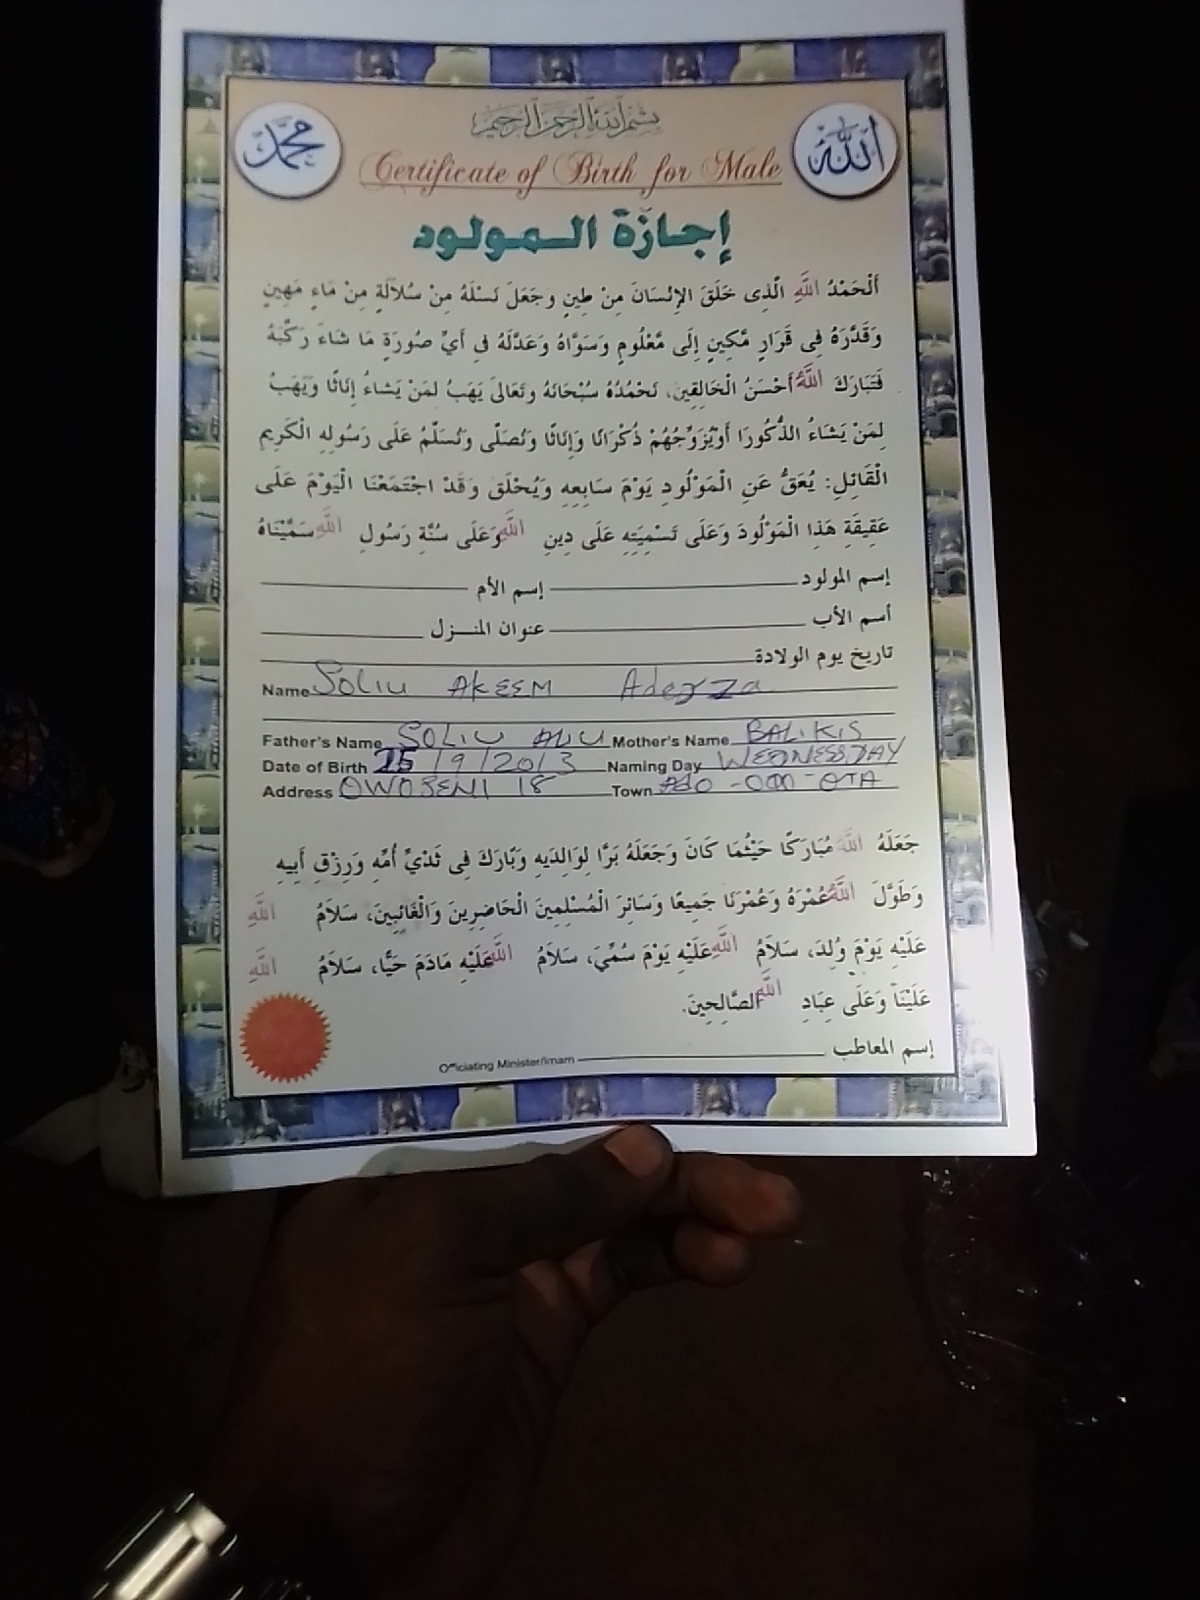 بسم الله الرحمن الرحيم
محمد
الله
Certificate of Birth for Male
إجازة المولود
أَلْحَمْدُ اللَّهِ الَّذِى خَلَقَ الإِنْسَانَ مِنْ طِينٍ وَجَعَلَ نَسْلَهُ مِنْ سُلاَلَةٍ مِنْ مَاءٍ مَهِينٍ
وَقَدَّرَهُ فِى قَرَارٍ مَّكِينٍ إِلَى مَّعْلُومٍ وَسَوَّاهُ وَعَدَّلَهُ فِى أَيِّ صُورَةٍ مَا شَاءَ رَكَّبَهُ
فَتَبَارَكَ اللَّهُ أَحْسَنُ الْخَالِقِينَ، نَحْمُدُهُ سُبْحَانَهُ وَتَعَالَى يَهَبُ لِمَنْ يَشَاءُ إِنَاثًا وَيَهَبُ
لِمَنْ يَشَاءُ الذُّكُورَا أَوْيُزَوِّجُهُمْ ذُكْرَانًا وَإِنَاثًا وَنُصَلِّى وَنُسَلِّمُ عَلَى رَسُولِهِ الْكَرِيمِ
الْقَائِلِ: يُعَقُّ عَنِ الْمَوْلُودِ يَوْمَ سَابِعِهِ وَيُحْلَقُ وَقَدْ اجْتَمَعْنَا الْيَوْمَ عَلَى
عَقِيقَةِ هَذَا الْمَوْلُودَ وَعَلَى تَسْمِيَتِهِ عَلَى دِينِ اللَّهِ وَعَلَى سُنَّةِ رَسُولِ اللَّهِ سَمَّيْنَاهُ
إسم المولود إسم الأم
أسم الأب عنوان المنزل
تاريخ يوم الولادة
Name SOLIU AKEEM
Father's Name SOLIU Mother's Name BALIKIS
Date of Birth 25/9/2013 Naming Day WEDNESDAY
Address OWOSENI 18 Town ADO - ODO - OTA
جَعَلَهُ اللَّهُ مُبَارَكًا حَيْثُمَا كَانَ وَجَعَلَهُ بَرًّا لِوَالِدَيهِ وَبَارَكَ فِى ثَدْيِّ أُمِّهِ وَرِزْقِ أَبِيهِ
وَطَوَّلَ اللَّهُ عُمْرَهُ وَعُمْرَنَا جَمِيعًا وَسَائِرَ الْمُسْلِمِينَ الْحَاضِرِينَ وَالْغَائِبِينَ، سَلاَمُ اللَّهِ
عَلَيْهِ يَوْمَ وُلِدَ، سَلاَمُ اللَّهِ عَلَيْهِ يَوْمَ سُمِّيَ، سَلاَمُ اللَّهِ عَلَيْهِ مَادَمَ حَيًّا، سَلاَمُ اللَّهِ
عَلَيْنَا وَعَلَى عِبَادِ اللَّهِ الصَّالِحِينَ.
إسم المعاطب Officiating Minister/Imam